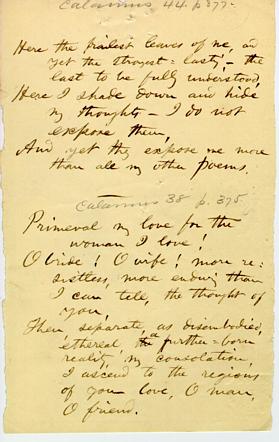 Calamus 44. p 377.
Here the frailest leaves of me, and
yet the strongest-lasting – the
last to be fully understood,
Here I shade down and hide
my thoughts – I do not
expose them,
And yet they expose me more
than all my other poems.
Calamus 38 p. 375
Primeval my love for the
woman I love!
O bride! O wife! more re-
sistless, more enduring than
I can tell, the thought of
you,
Then separate, as disembodied,
ethereal a further-born
reality, my consolation,
I ascend to the regions
of your love, O man,
O friend.